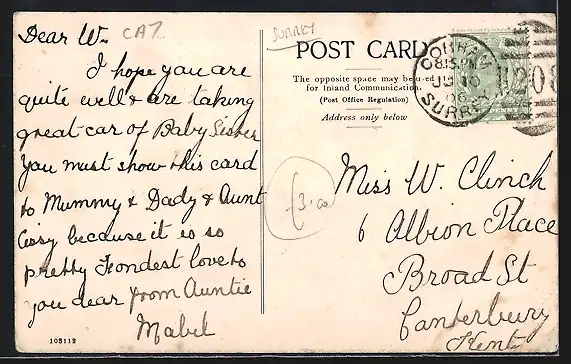 Dear W.
I hope you are
quite well & are taking
great car of Baby Sister
you must show this card
to Mummy & Dady & Aunt
Cissy because it is so
pretty Fondest love to
you dear from Auntie
Mabel
103112
CA7
SURREY
POST CARD
The opposite space may be used
for Inland Communication.
(Post Office Regulation)
Address only below
COBHAM
8.15 PM
JU 16
06
SURREY
208
PENNY
£3.00
Miss W. Clinch
6 Albion Place
Broad St
Canterbury
Kent